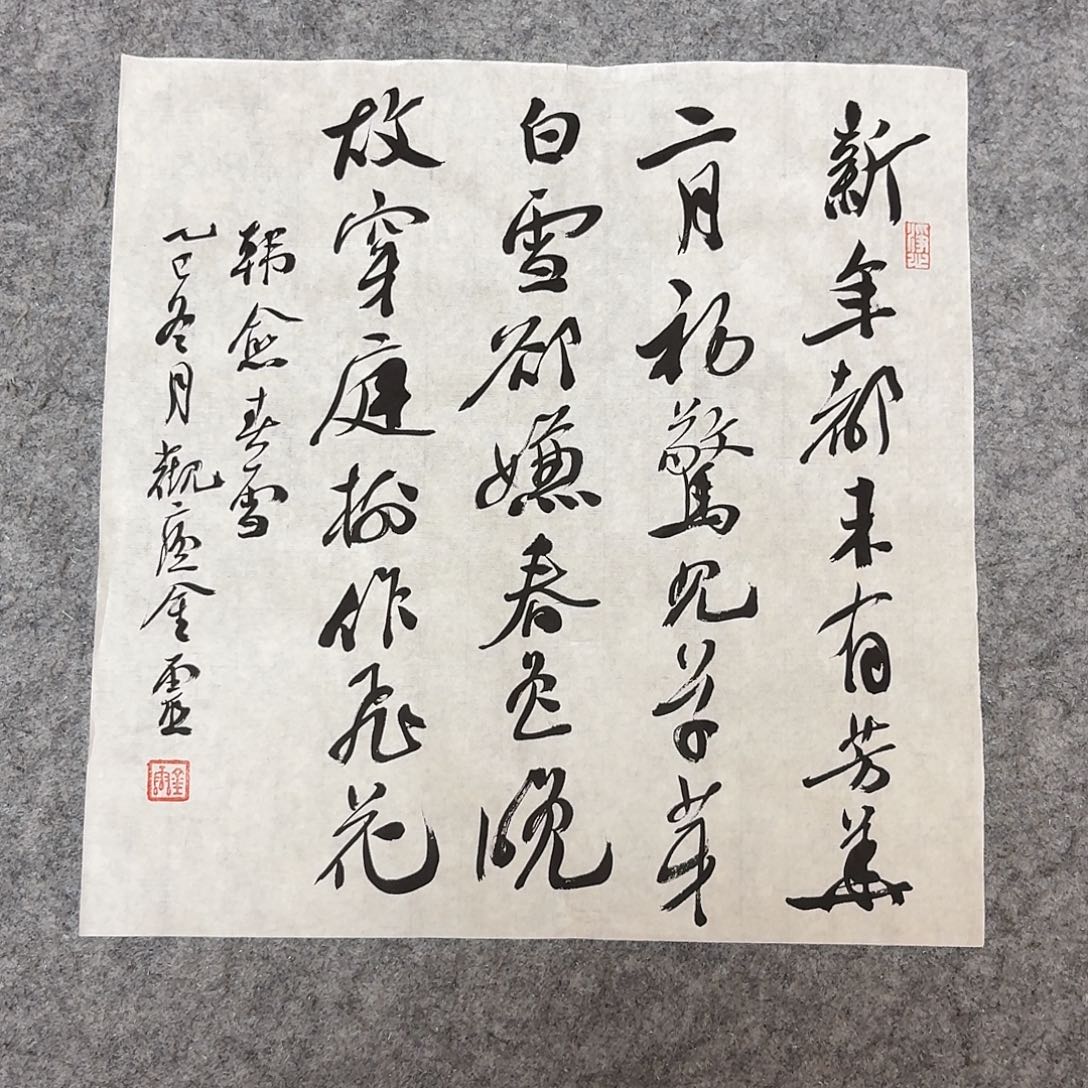 新年都未有芳華
二月初驚見草芽
白雪卻嫌春色晚
故穿庭樹作飛花
韓愈春雪
乙巳冬月觀廬金靈